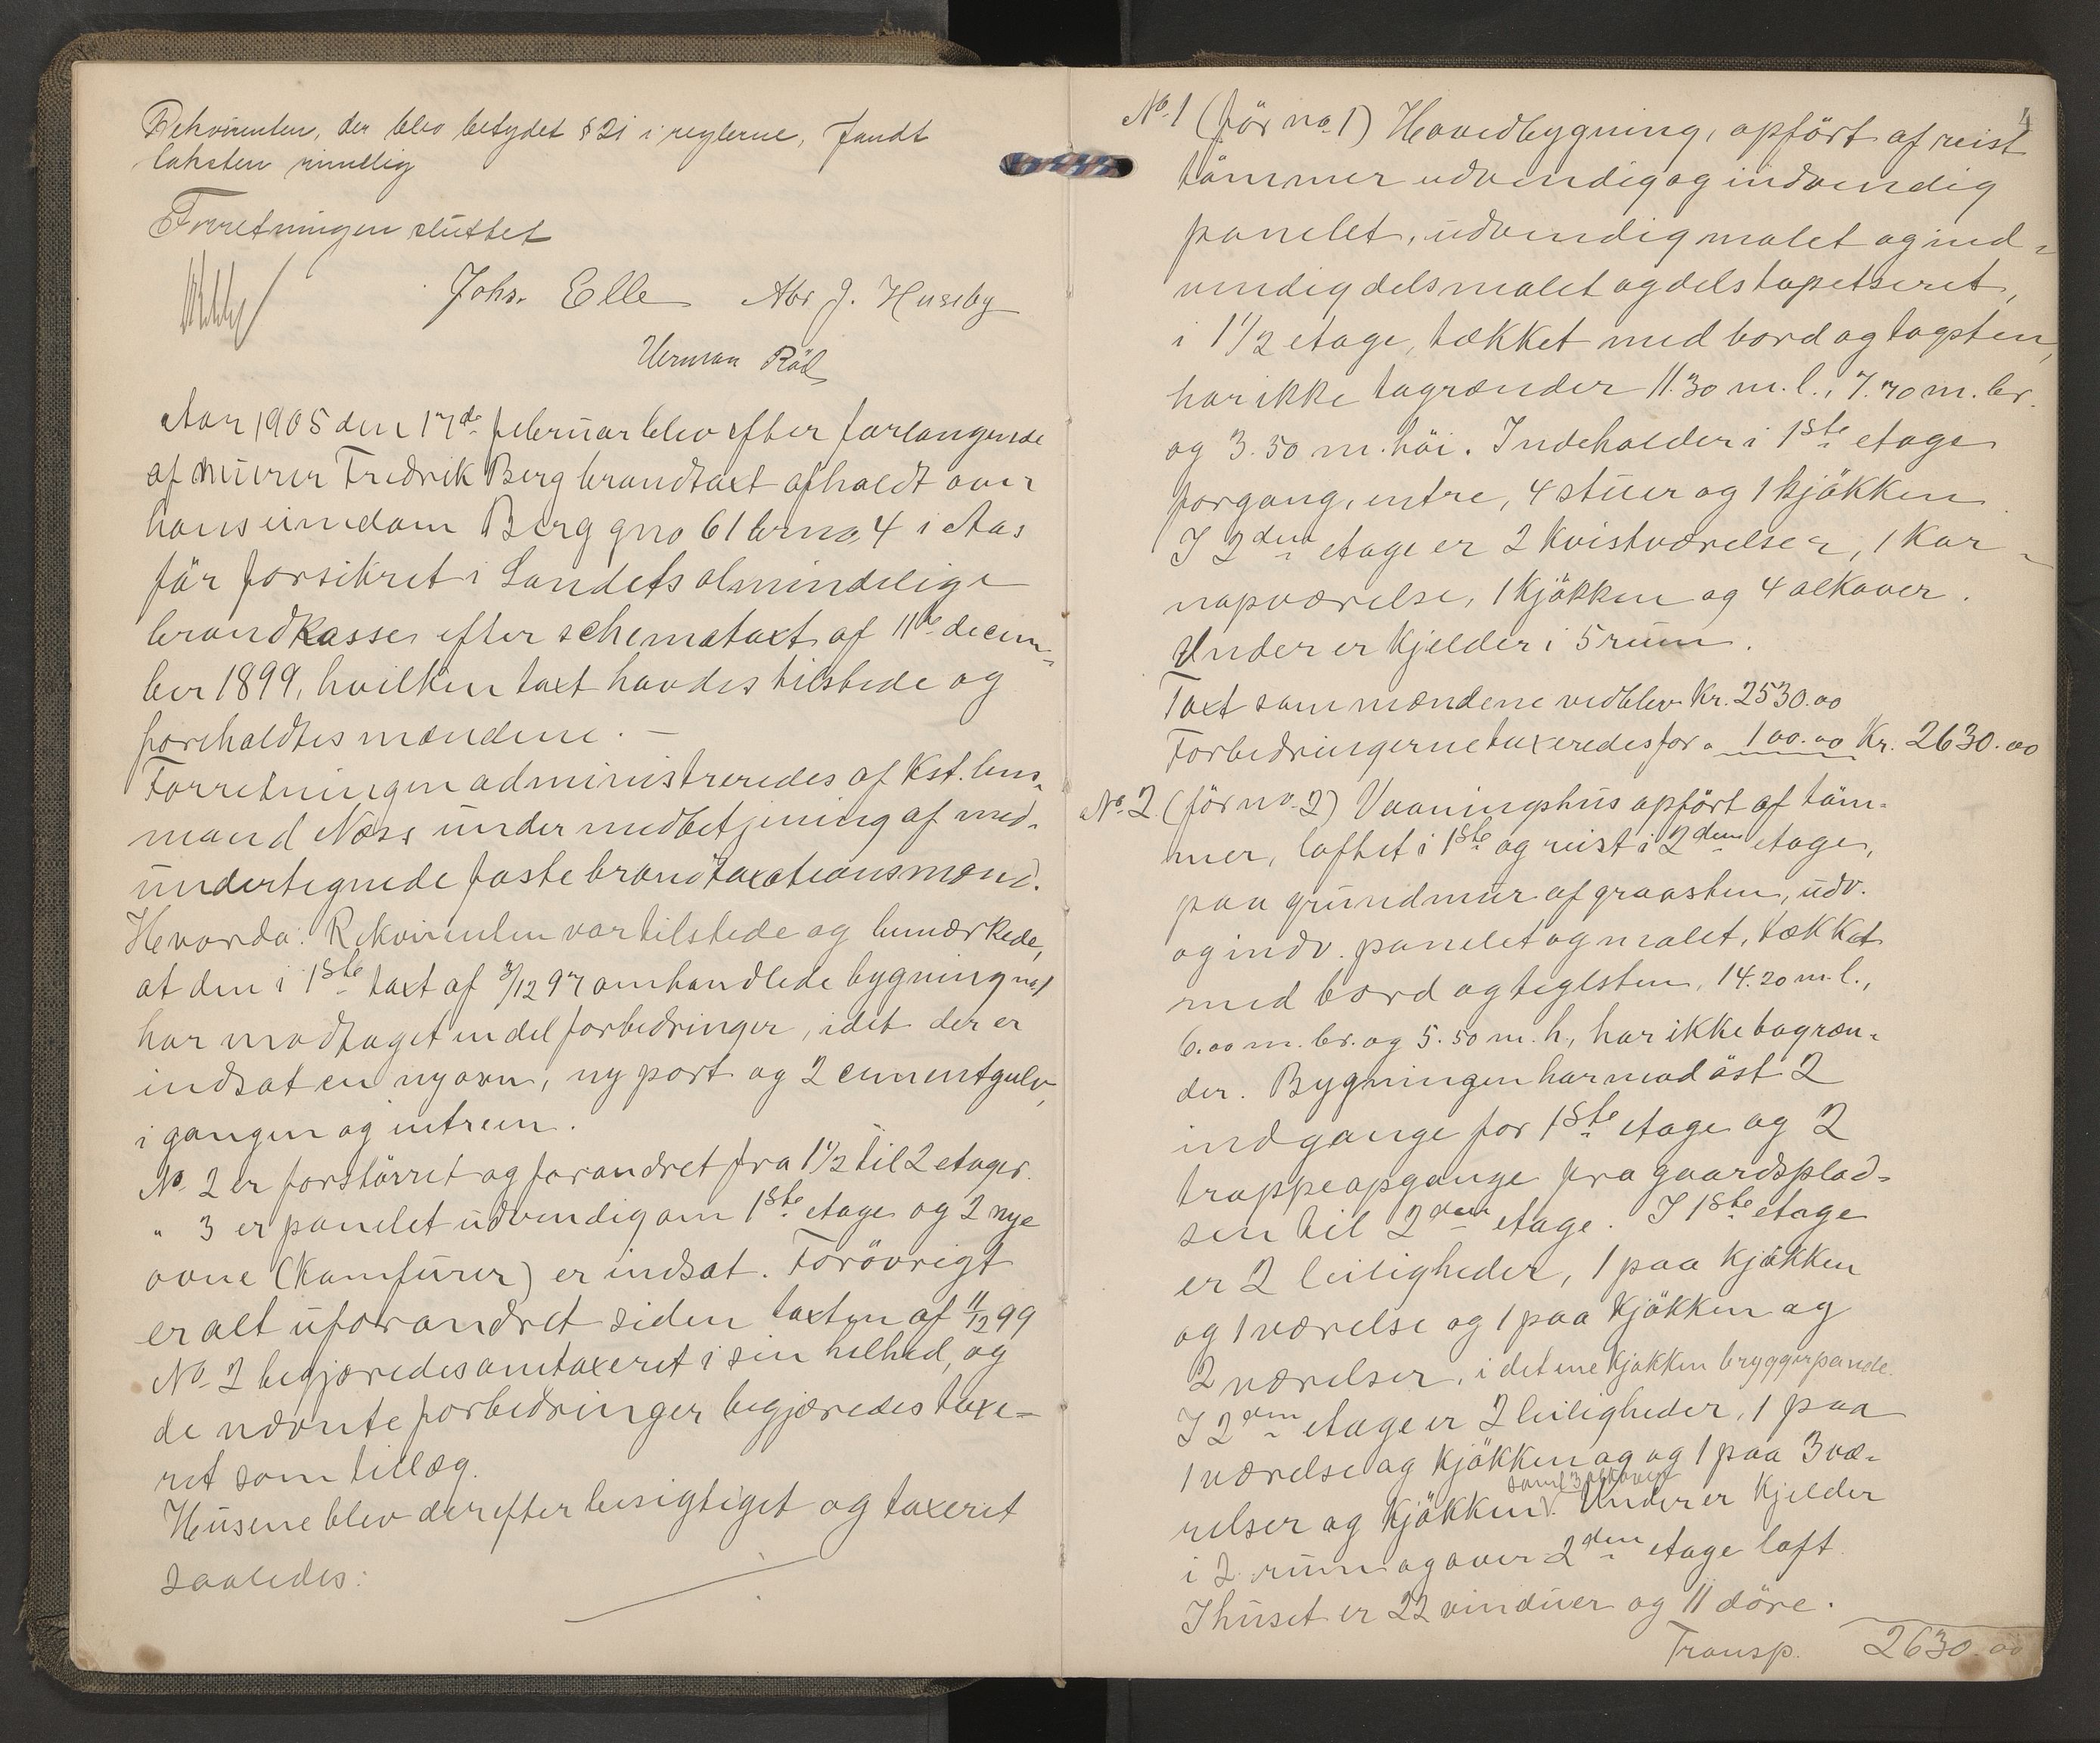 Rekvirenten, der blev betydet § 21 i reglerne, fandt
taksten rimelig
Forretningen sluttet
Johs. Elle Abr J. Huseby
Herman Röd
Aar 1905 den 17de februar blev efter forlangende
af murer Fredrik Berg brandtaxt afholdt over
hans eiendom Berg gno 61 brno. 4 i Aas
för forsikret i Landets almindelige
brandkasse efter schemataxt af 11te decem-
ber 1899, hvilken taxt havdes tilstede og
foreholdtes mændene. —
Forretningen administreredes af Kst. lens-
mand Næss under medbetjening af med-
undertegnede faste brandtaxationsmænd.
Hvorda: Rekvirenten var tilstede og bemærkede,
at den i 1ste taxt af 3/12 97 omhandlede bygning no 1
har modtaget en del forbedringer, idet der er
indsat en ny ovn, ny port og 2 cementgulv,
i gangen og entreen.
No. 2 er forstörret og forandret fra 1 1/2 til 2 etager.
" 3 er panelet udvendig om 1ste etage og 2 nye
ovne (Kamfurer) er indsat. Forövrigt
er alt uforandret siden taxten af 11/12 99
No. 2 begjæredes omtaxeret i sin helhed, og
de nævnte forbedringer begjæredes taxe-
ret som tillæg.
Husene blev derefter besigtiget og taxeret
saaledes:
4
No. 1 (för no. 1) Hovedbygning, opfört af reist
tömmer udvendig og indvendig
panelet, udvendig malet og ind-
vendig dels malet og dels tapetseret,
i 1 1/2 etage, tækket med bord og tagsten,
har ikke tagrænder 11.30 m. l., 7.70 m. br.
og 3.50 m. höi. Indeholder i 1ste etage
forgang, entre, 4 stuer og 1 kjökken.
I 2den etage er 2 Kvistværelser, 1 Kar-
napværelse, 1 Kjökken og 4 alkover.
Under er Kjelder i 5 rum.
Taxt som mændene vedblev Kr. 2530.00
Forbedringerne taxeredes for " 100.00 Kr. 2630.00
No. 2. (för no. 2) Vaaningshus opfört af töm-
mer, laftet i 1ste og reist i 2den etage,
paa grundmur af graasten, udv.
og indv. panelet og malet, tækket
med bord og teglsten, 14.20 m. l.,
6.00 m. br. og 5.50 m. h., har ikke tagræn-
der. Bygningen har mod öst 2
indgange for 1ste etage og 2
trappeopgange fra gaardsplad-
sen til 2den etage. I 1ste etage
er 2 leiligheder, 1 paa Kjökken
og 1 værelse og 1 paa Kjökken og
2 værelser, i det ene Kjøkken bryggerpande.
I 2den etage er 2 leiligheder, 1 paa
1 værelse og Kjökken og og 1 paa 3 væ-
samt 3 alkover
relser og Kjökken. Under er Kjelder
i 2 rum og over 2den etage loft.
I huset er 22 vinduer og 11 döre.
Transp. 2630.00